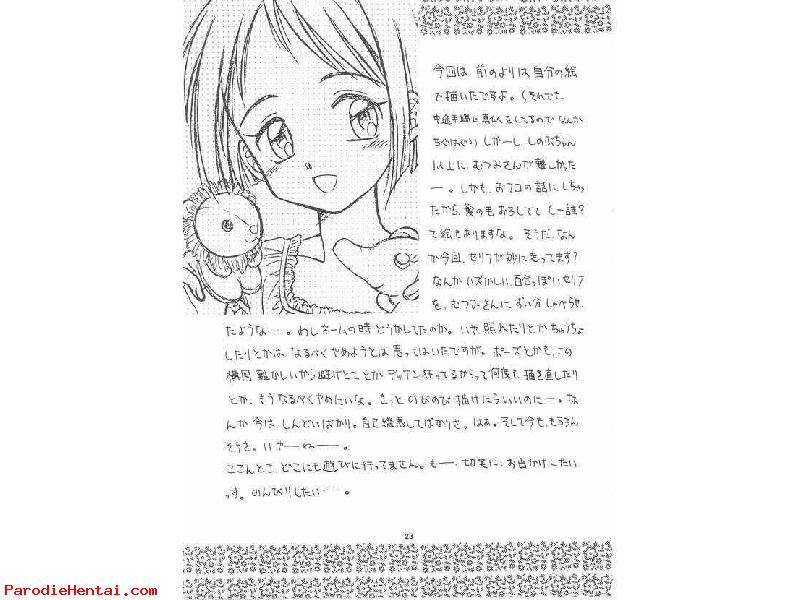 今回は 前のよりは自分の絵
で描いたですよ。(それでも
しかーし、しのぶちゃん
以上に、むつみさんが難しかった
ー。しかも、おフロの話にしちゃっ
たから、髪の毛おろしてて
て絵もありますな。そうだ、なん
か今回、セリフが妙に走ってます?
なんかハズかしい、百合っぽいセリフ
を、むつみさんに
たような…。わしネームの時どうかしてたのか。いや、照れたりとか
したりとかは、なるべくやめようとは思ってはいたですが。ポーズとかも、この
構図 難かしいから避けとことか デッサン狂ってるからって何度も描き直したり
とか、もうなるべくやめたいな。きっと のびのび描けたらいいのにー。な
んか今は しんどいばかり。自己嫌悪してばかりさ。はぁ。そして今も、もちろん
そうさ。いやーねーー。
ここんとこ、どこにも遊びに行ってません。もー、切実に、お出かけしたい
っす。のんびりしたい…。
23
ParodieHentai.com